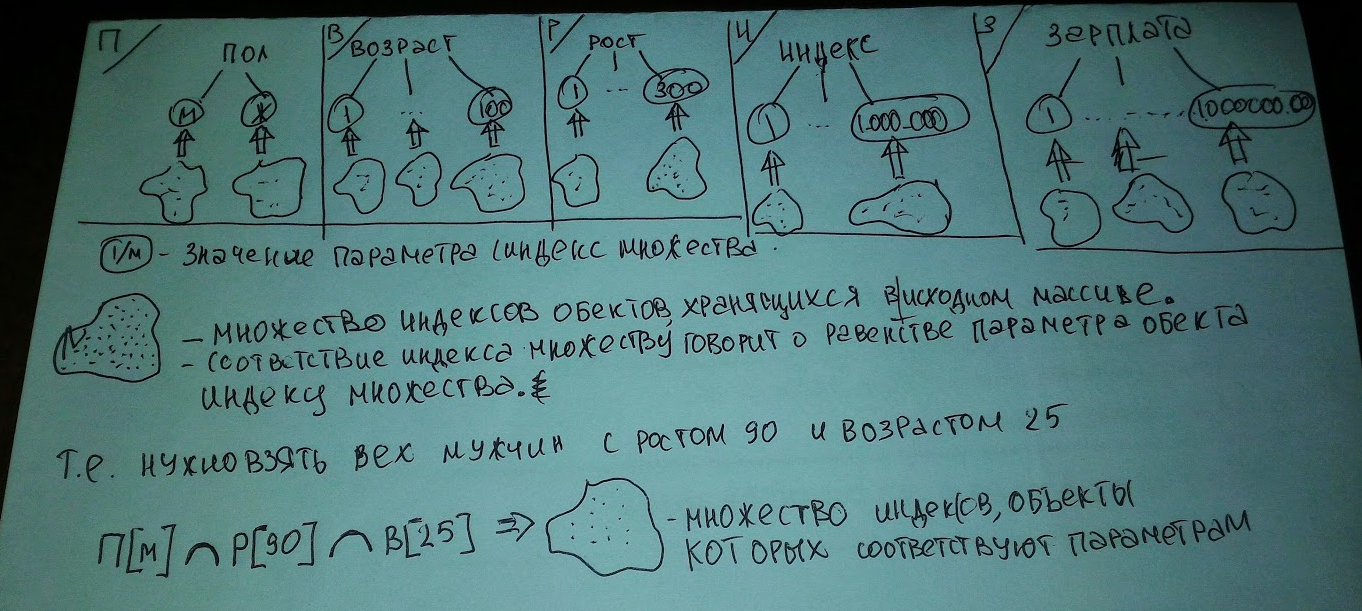 П/ ПОЛ
М Ж
В/ ВОЗРАСТ
1 ... 100
Р/ РОСТ
1 ... 300
И/ ИНДЕКС
1 ... 1.000.000
З/ ЗЕРПЛАТА
1 ........ 1000000.00
1/М - ЗНАЧЕНИЕ ПАРАМЕТРА (ИНДЕКС МНОЖЕСТВА.
- МНОЖЕСТВО ИНДЕКСОВ ОБЕКТОВ, ХРАНЯЩИХСЯ В ИСХОДНОМ МАССИВЕ.
- СООТВТСТВИЕ ИНДЕКСА МНОЖЕСТВУ ГОВОРИТ О РАВЕНСТВЕ ПАРАМЕТРА ОБЕКТА
ИНДЕКУ МНОЖЕСТВА.
Т.Е. НУЖНО ВЗЯТЬ ВЕХ МУЖЧИН С РОСТОМ 90 И ВОЗРАСТОМ 25
П[М] ∩ Р[90] ∩ В[25] ⇒ - МНОЖЕСТВО ИНДЕКСВ, ОБЪЕКТЫ
КОТОРЫХ СООТВЕТСТВУЮТ ПАРАМЕТРАМ